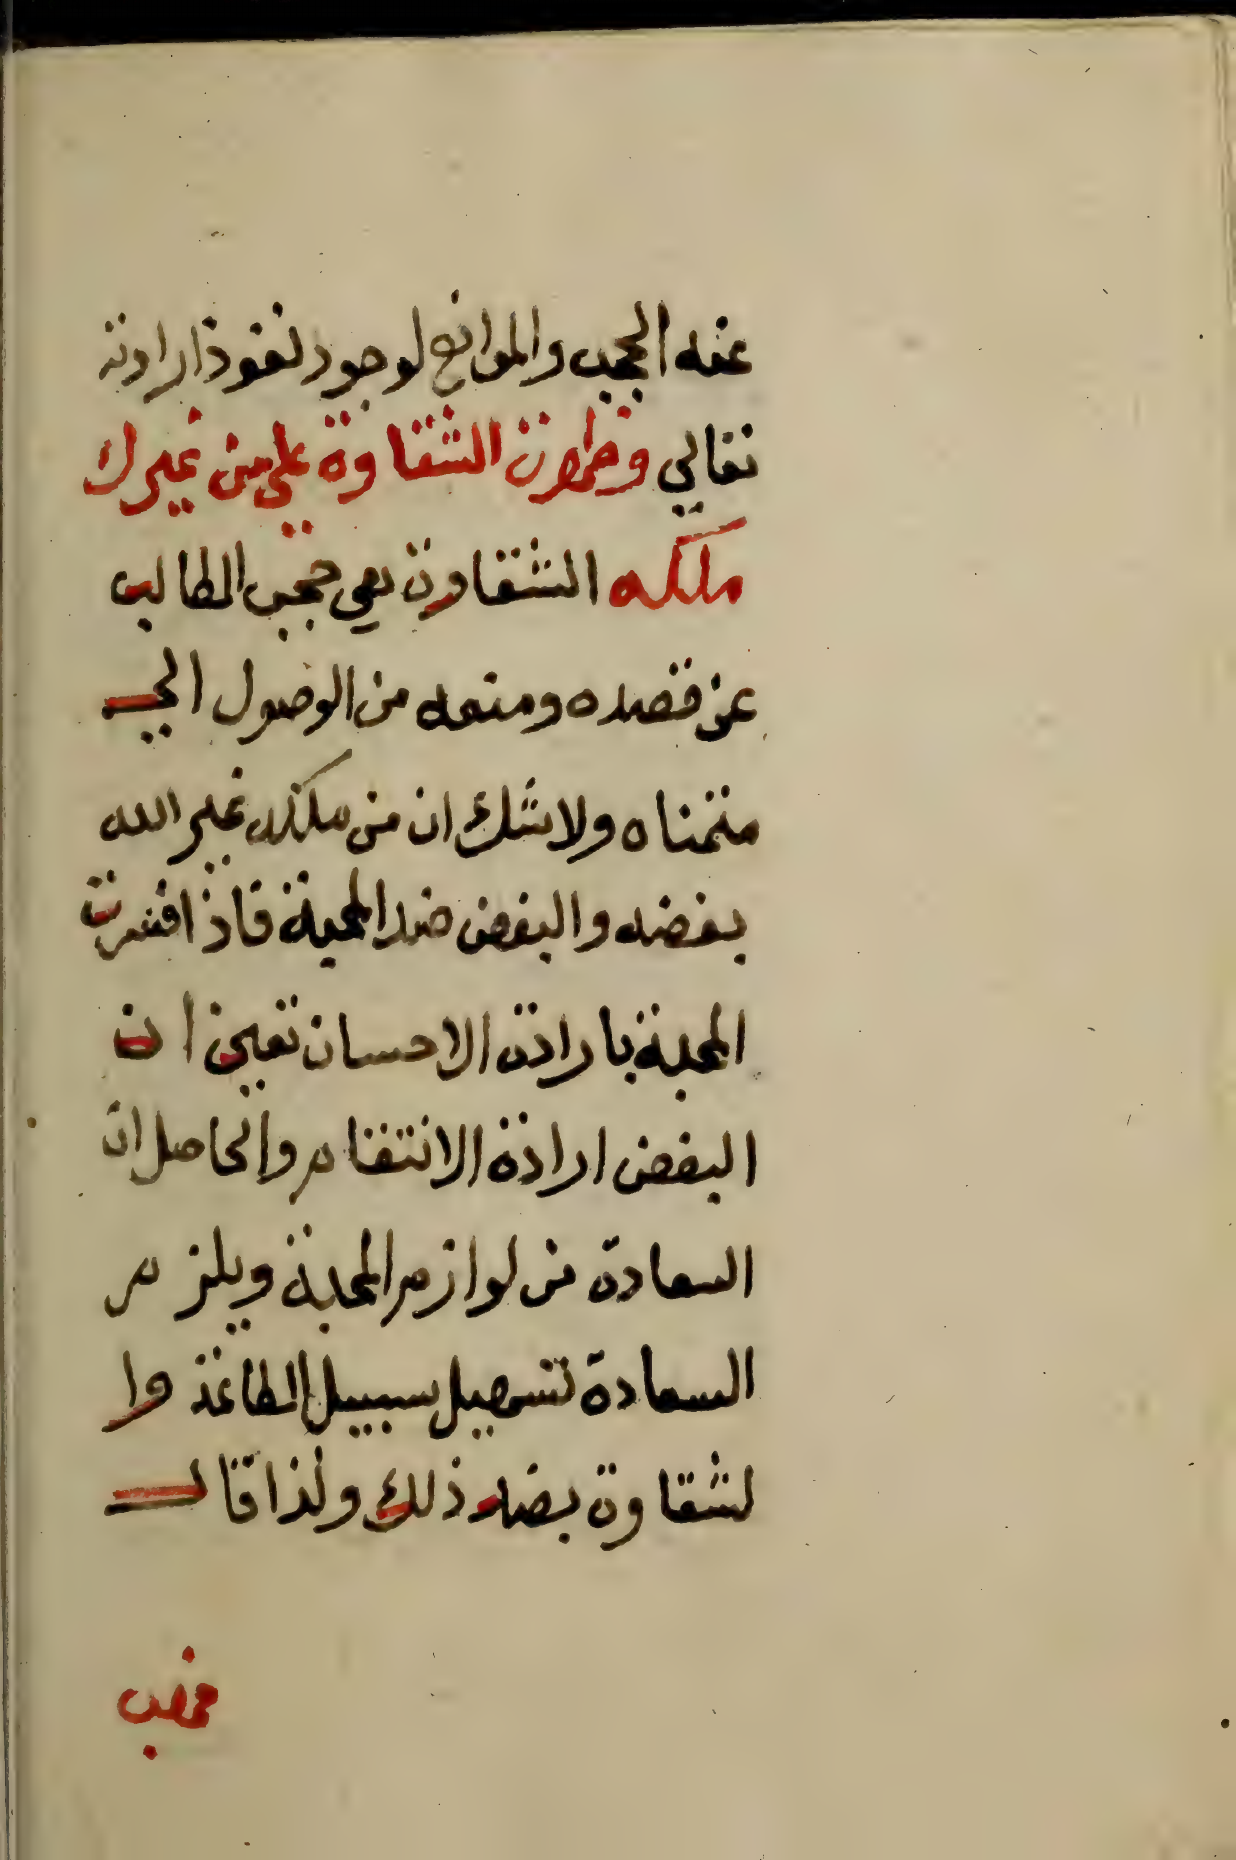 عنه الحجب والموانع لوجود نفوذ ارادته
تعالي وظهرت الشقاوة علي من غيرك
ملكه الشقاوة هي حجب الطالب
عن قصده ومنعه من الوصول الي
متمناه ولا شك ان من ملكه غير الله
بغضه والبغض ضد المحبة فاذا فسرت
المحبة بارادة الاحسان تعين ان
البغض ارادة الانتقام والحاصل ان
السعادة من لوازم المحبة ويلزم
السعادة تسهيل سبيل الطاعة وا
لشقاوة بضد ذلك ولذا قال
فهب